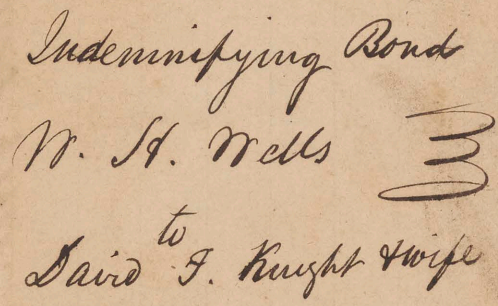 Indemnifying Bond
W. H. Wells
to
David F. Knight & wife